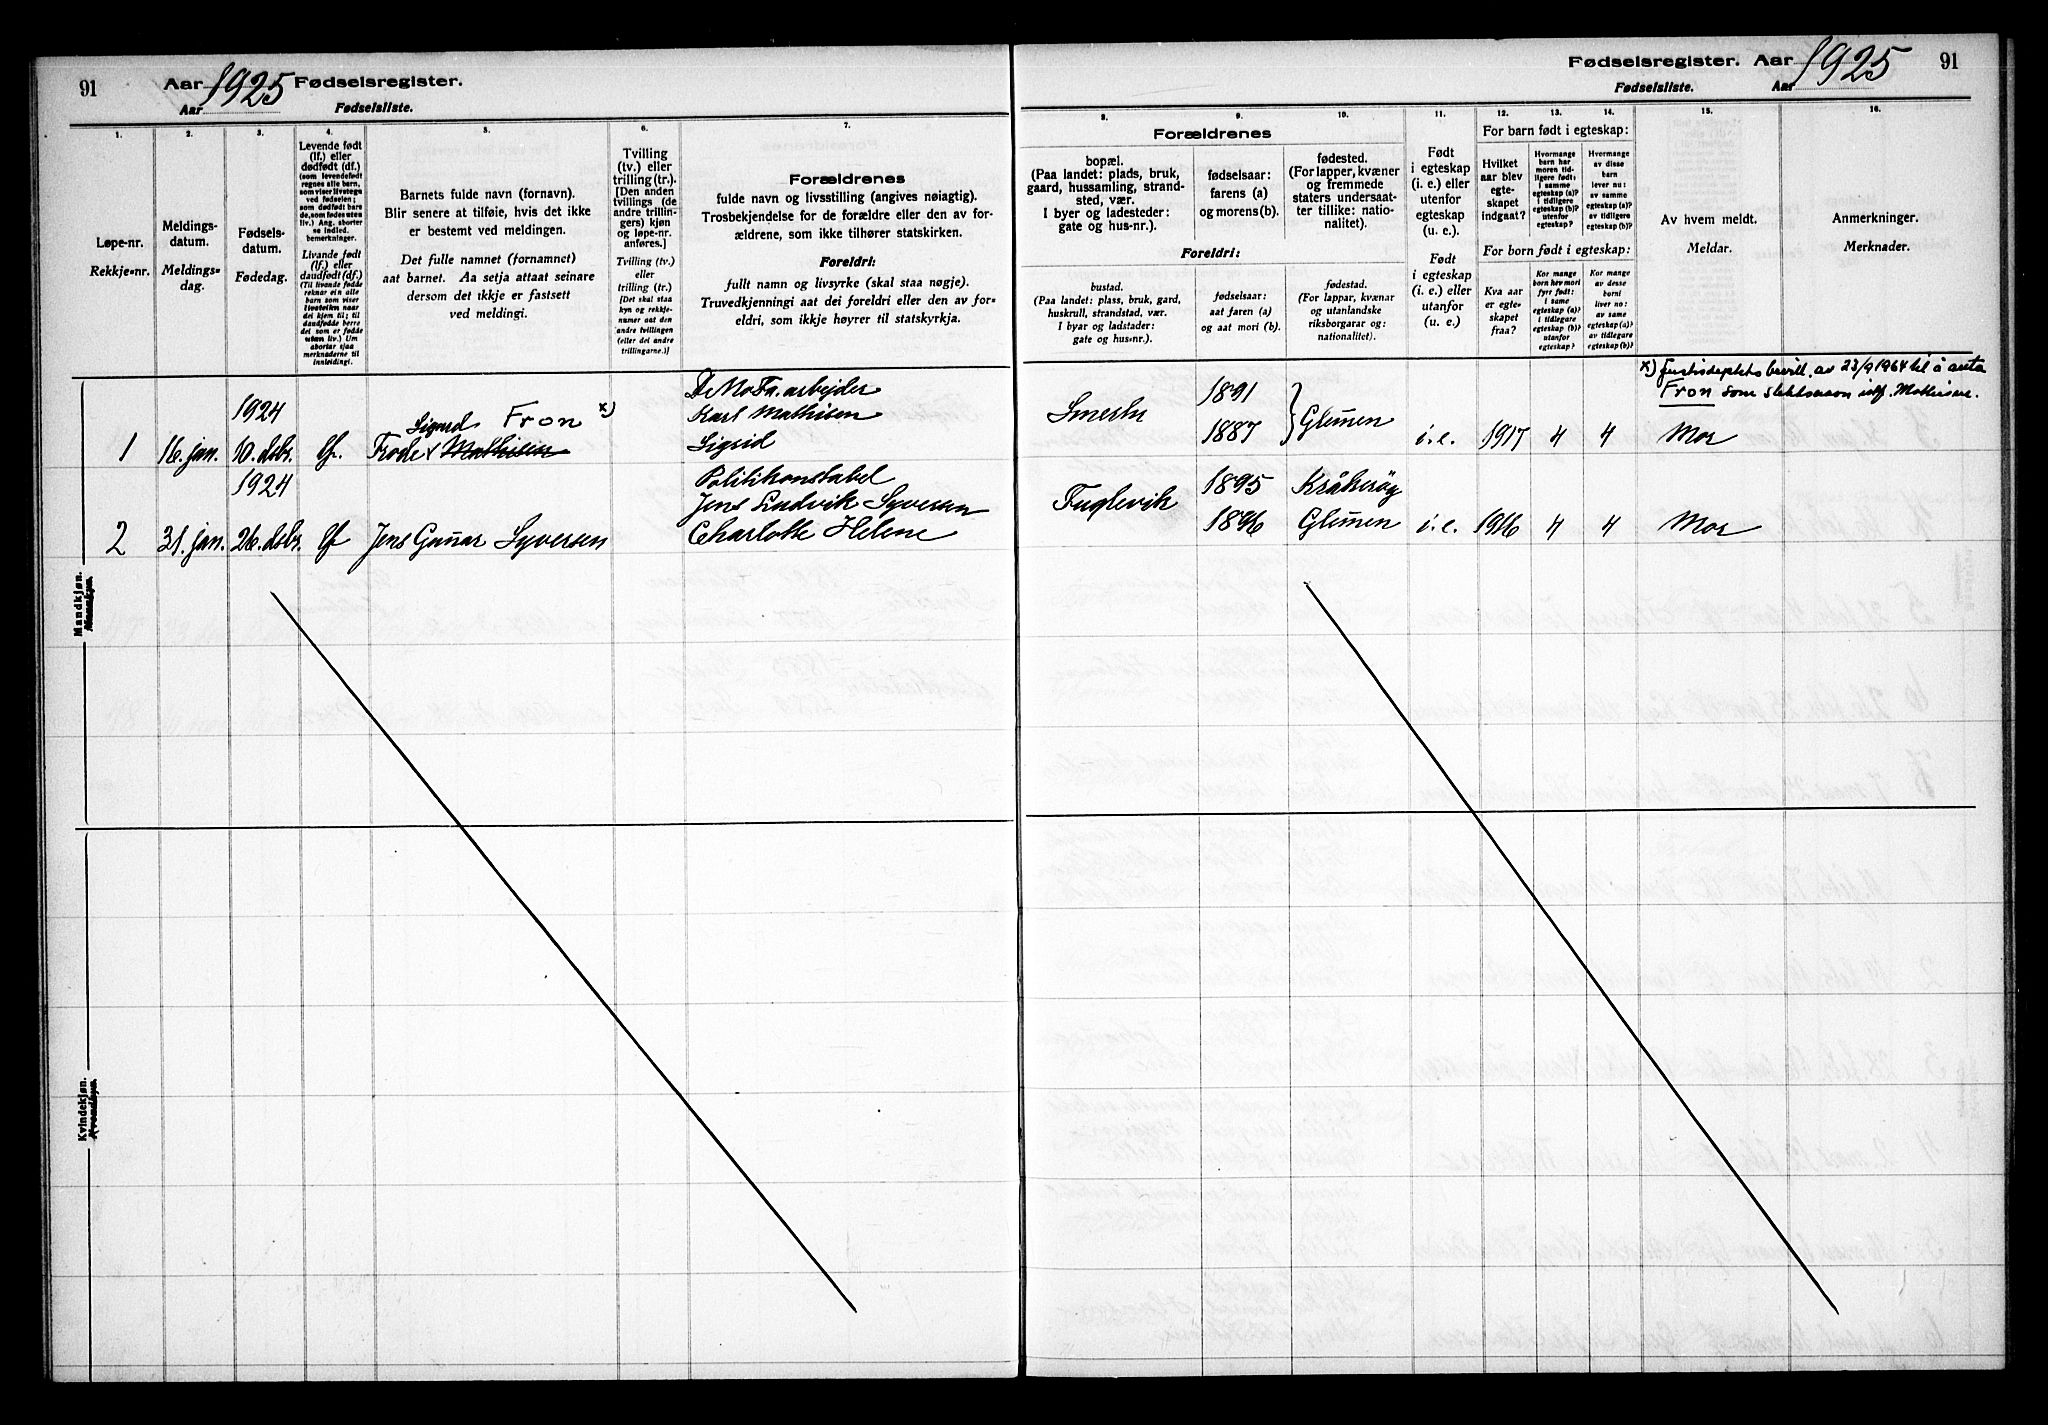 91
Aar 1925 Fødselsregister.
Aar Fødselsliste.
1.
Løpe-nr.
Rekkje-nr.
2.
Meldings-
datum.
Meldings-
dag.
3.
Fødsels-
datum.
Fødedag.
4.
Levende født
(lf.) eller
dødfødt (df.)
(som levendefødt
regnes alle barn,
som viser livstegn
ved fødselen;
som dødfødt bar-
de, som fødes uten
liv.) Ang. aborter
se indled.
bemerkninger.
Livande født
(lf.) eller
daudfødt (df.)
(Til livande fødde
reknar ein alle
barn som viser
livsteikn naar
dei kjem til; til
daudfødde berre
dei som er fødde
utan liv.) Um
abortar sjaa
merknaderne til
innleidingi.
5.
Barnets fulde navn (fornavn).
Blir senere at tilføie, hvis det ikke
er bestemt ved meldingen.
Det fulle namnet (fornamnet)
aat barnet. Aa setja attaat seinare
dersom det ikkje er fastsett
ved meldingi.
6.
Tvilling
(tv.) eller
trilling (tr.).
[Den anden
tvillings (de
andre trillin-
gers) kjøn
og løpe-nr.
anføres.]
Tvilling (tv.)
eller
trilling (tr.)
[Det skal staa
kyn og rekkje-
numer aat den
andre tvillingen
(eller dei andre
trillingarne.)]
7.
Forældrenes
fulde navn og livsstilling (angives nøiagtig).
Trosbekjendelse for de forældre eller den av for-
ældrene, som ikke tilhører statskirken.
Foreldri:
fullt namn og livsyrke (skal staa nøgje).
Truvedkjenningi aat dei foreldri eller den av for-
eldri, som ikkje høyrer til statskyrkja.
Mandkjøn.
Mannkyn.
1924
Sigurd Fron x)
De No Fa. arbejder
Karl Mathisen
1 16. jan. 10. dsbr. lf. Frode Mathisen Sigrid
1924
Politikonstabel
Jens Ludvik Syversen
2 31. jan. 26. dsbr. lf Jens Gunnar Syversen Charlotte Helene
Kvindekjøn.
Kvendkyn.
Fødselsregister. Aar 1925 91
Fødselsliste. Aar
8.
9.
10.
Forældrenes
bopæl.
(Paa landet: plads, bruk,
gaard, hussamling, strand-
sted, vær.
I byer og ladesteder:
gate og hus-nr.).
fødselsaar:
farens (a)
og morens (b).
fødested.
(For lapper, kvæner
og fremmede
staters undersaat-
ter tillike: natio-
nalitet).
Foreldri:
bustad.
(Paa landet: plass, bruk, gard,
huskrull, strandstad, vær.
I byar og ladstader:
gate og hus-nr.).
fødselsaar:
aat faren (a)
og aat mori (b).
fødestad.
(For lappar, kvænar
og utanlandske
riksborgarar: na-
tionalitet).
11.
Født
i egteskap
(i. e.) eller
utenfor
egteskap
(u. e.).
Født
i egteskap
(i. e.) eller
utanfor
(u. e.)
12.
13.
14.
For barn født i egteskap:
Hvilket
aar blev
egte-
skapet
indgaat?
Hvormange
barn har
moren tid-
ligere født:
i samme
egteskap (a)?
utenfor
egteskap (b)?
i tidligere
egteskap?
Hvormange
av disse
barn
lever nu:
av samme
egteskap (a)?
av tidligere
egteskap (b)?
For born født i egteskap:
Kva aar
er egte-
skapet
fraa?
Kor mange
born hev mori
fyrr født:
i same
egteskap (a)?
i tidlegare
egteskap (b)?
utanfor
egteskap?
Kor mange
av desse
borni
liver no:
av same
egteskap (a)?
av tidlegare
egteskap (b)?
15.
Av hvem meldt.
Meldar.
16.
Anmerkninger.
Merknader.
x) Justisdeptets bevill. av 23/9 1964 til å anta
Fron som slektsnavn istf. Mathisen.
1891
Smerta 1887 Glemen i.e. 1917 4 4 Mor
1895 Kråkerøy
Fuglevik 1896 Glemen i.e. 1916 4 4 Mor